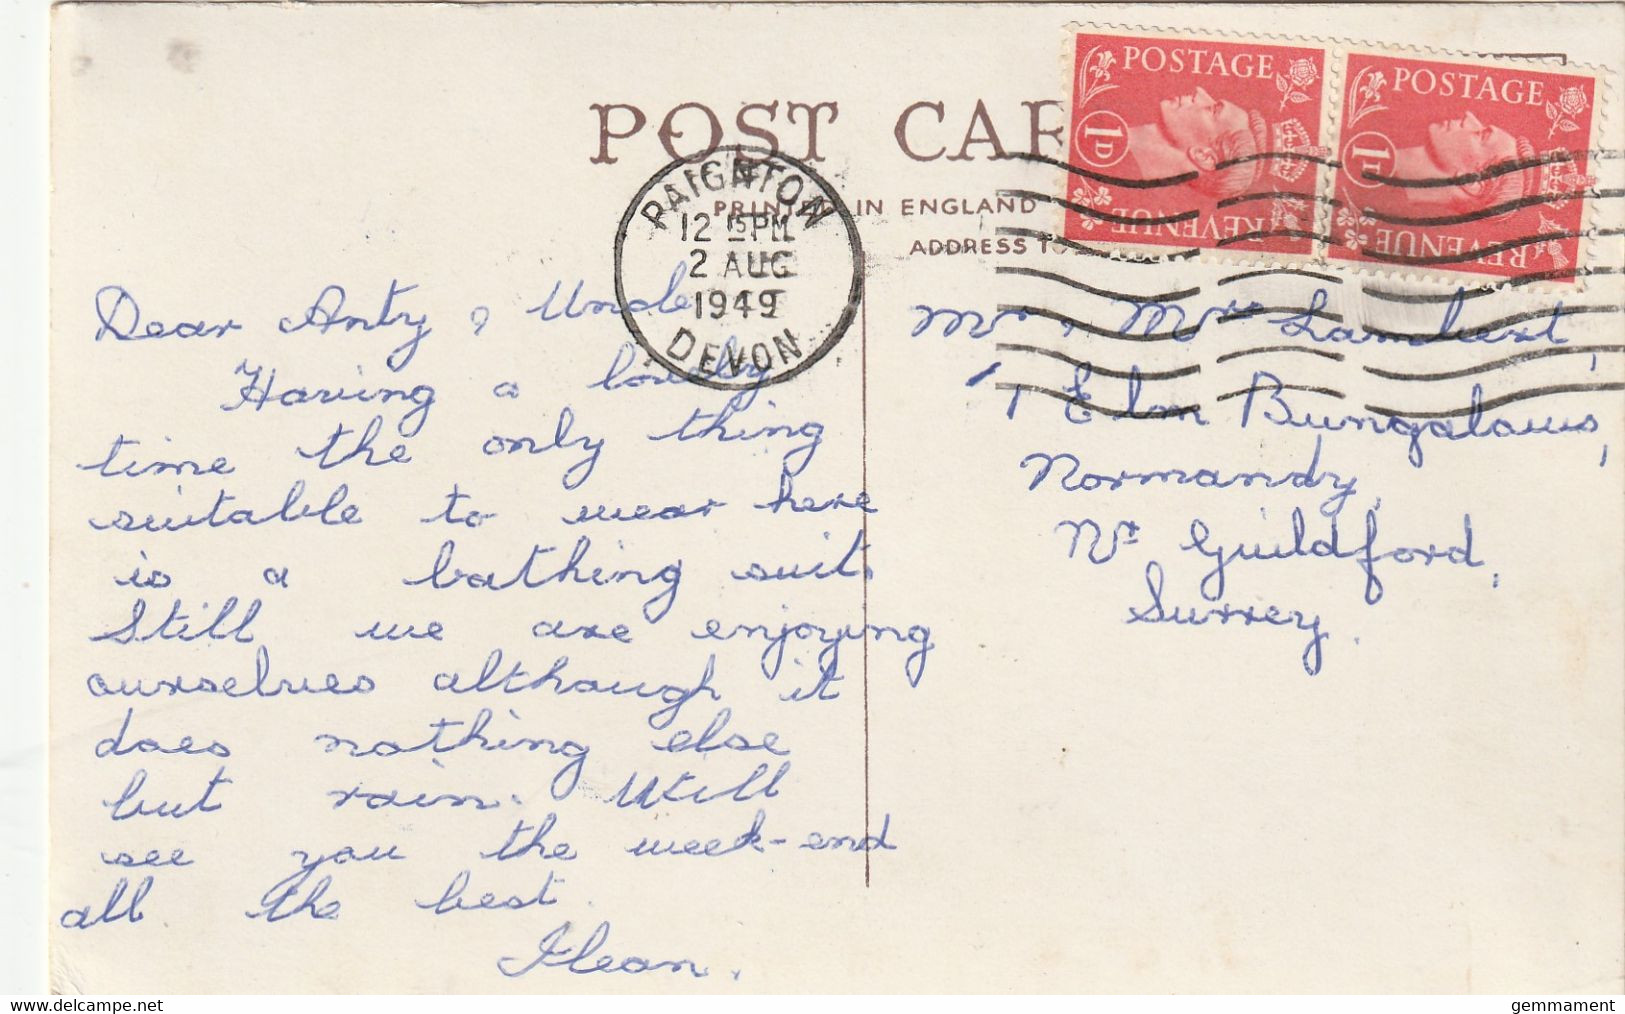 POST CAR
PRINTED IN ENGLAND
ADDRESS TO
POSTAGE
1D
REVENUE
POSTAGE
1D
REVENUE
PAIGNTON
12 15 PM
2 AUG
1949
DEVON
Dear Anty & Uncle
Having a lovely
time the only thing
suitable to wear here
is a bathing suit.
Still we are enjoying
ourselves although it
does nothing else
but rain. Will
see you the week-end
all the best.
Mr & Mrs Lambert,
1 Elm Bungalows,
Normandy,
Nr Guildford,
Surrey.
gemmament